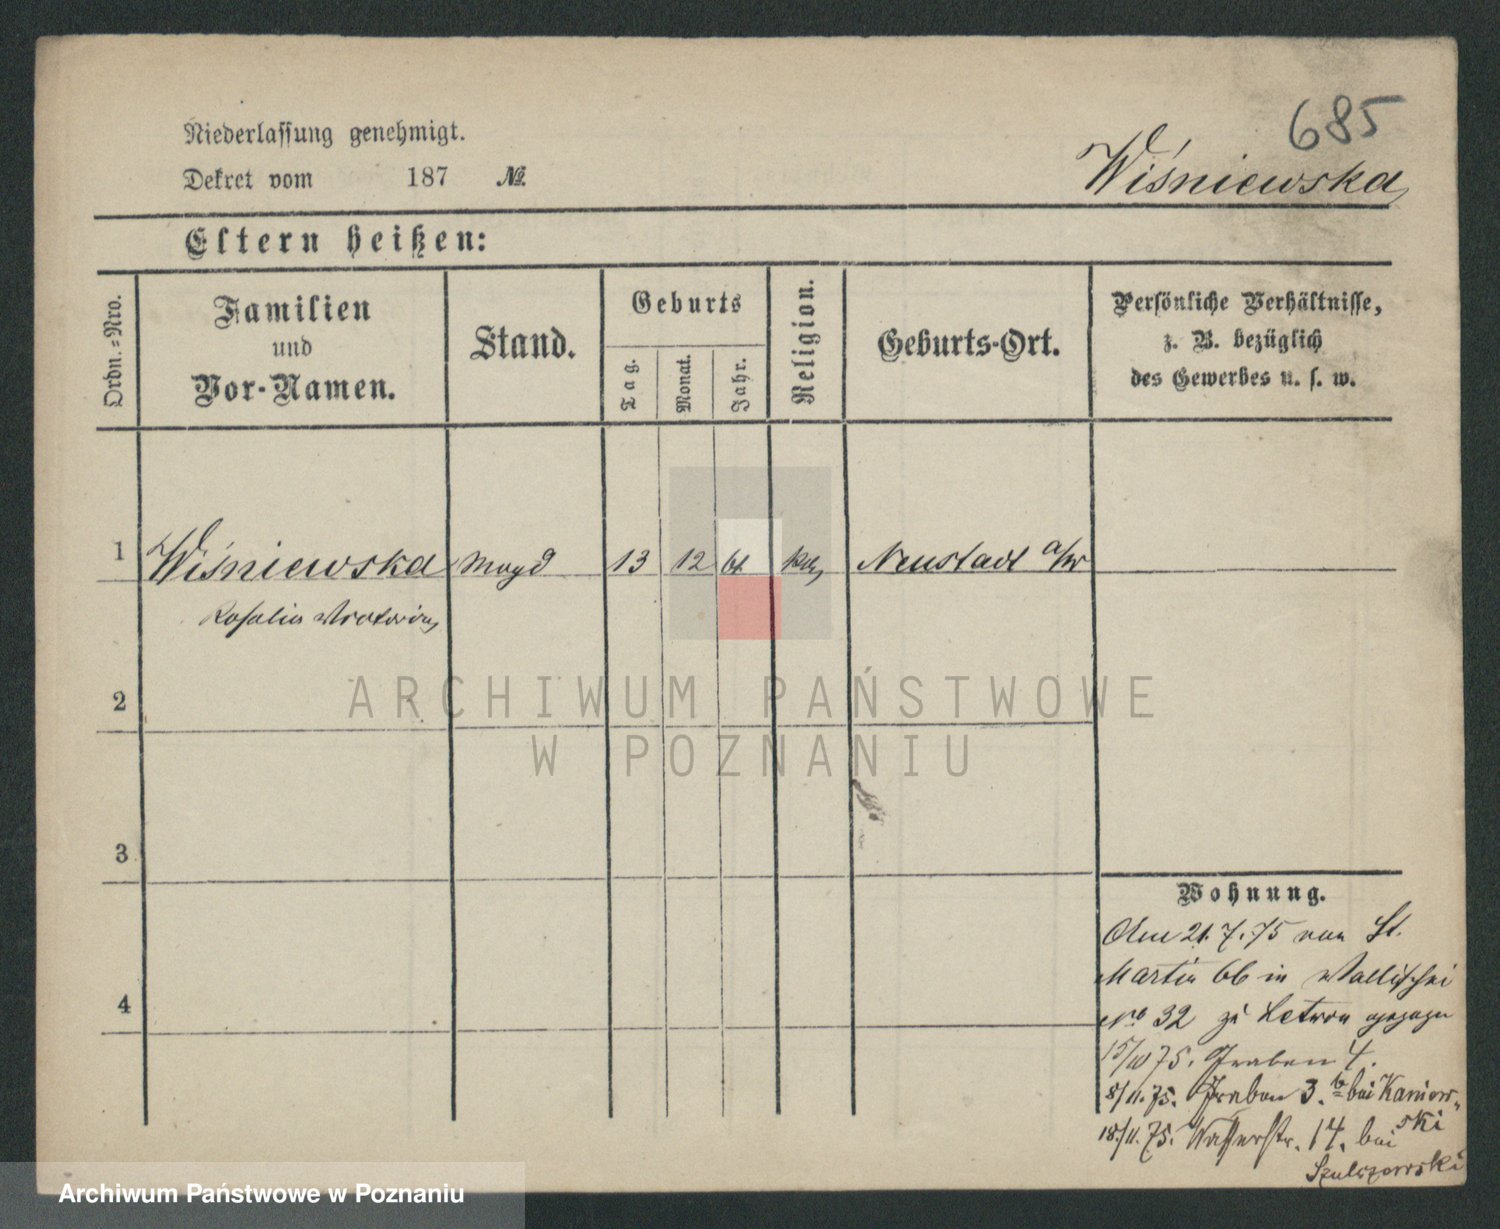 685
Niederlassung genehmigt.
Dekret vom 187 №.
Wiśniewska
Eltern heißen:
Ordn.-Nro.
Familien
und
Vor-Namen.
Stand.
Geburts
Tag.
Monat.
Jahr.
Religion.
Geburts-Ort.
Persönliche Verhältnisse,
z. B. bezüglich
des Gewerbes u. s. w.
1 Wiśniewska Magd 13 12 Neustadt a/W
Rosalia
2
ARCHIWUM PAŃSTWOWE
W POZNANIU
3
4
Wohnung.
Am 21.7.75 von St.
Martin 66 in Wallischei
No 32 zu gezogen
15/10 75. Graben 4.
8/11.75. Graben 3.b bei Kaniow-
ski
18/11.75. Wasserstr. 14. bei
Szulczewski
Archiwum Państwowe w Poznaniu